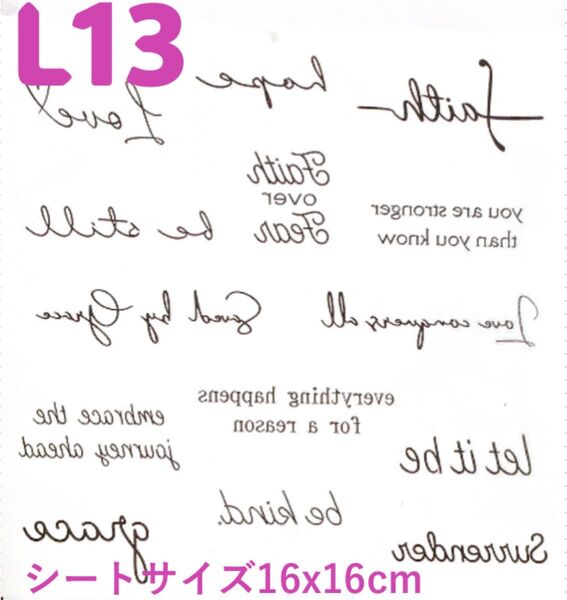 L13
hope
Love
faith
Faith
over
Fear
you are stronger
than you know
be still
Love conquers all
Saved by Grace
everything happens
for a reason
embrace the
journey ahead
let it be
be kind.
grace
Surrender
シートサイズ16x16cm